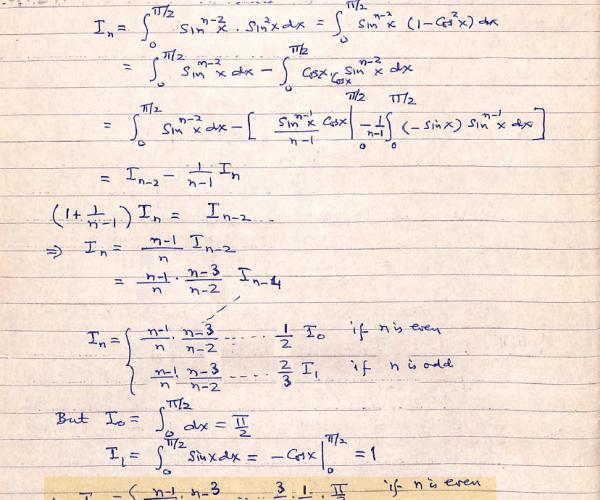 I_n = ∫_0^{π/2} sin^{n-2}x · sin²x dx = ∫_0^{π/2} sin^{n-2}x (1-cos²x) dx
= ∫_0^{π/2} sin^{n-2}x dx - ∫_0^{π/2} cosx cosx sin^{n-2}x dx
= ∫_0^{π/2} sin^{n-2}x dx - [ sin^{n-1}x/(n-1) cosx |_0^{π/2} - 1/(n-1) ∫_0^{π/2} (-sinx) sin^{n-1}x dx ]
= I_{n-2} - 1/(n-1) I_n
(1 + 1/(n-1)) I_n = I_{n-2}
⇒ I_n = (n-1)/n I_{n-2}
= (n-1)/n · (n-3)/(n-2) I_{n-4}
I_n = { (n-1)/n · (n-3)/(n-2) ..... 1/2 I_0 if n is even
(n-1)/n · (n-3)/(n-2) ..... 2/3 I_1 if n is odd
But I_0 = ∫_0^{π/2} dx = π/2
I_1 = ∫_0^{π/2} sinx dx = -cosx |_0^{π/2} = 1
∴ I_n = { (n-1)/n · (n-3) 3 · 1 · π/2 if n is even